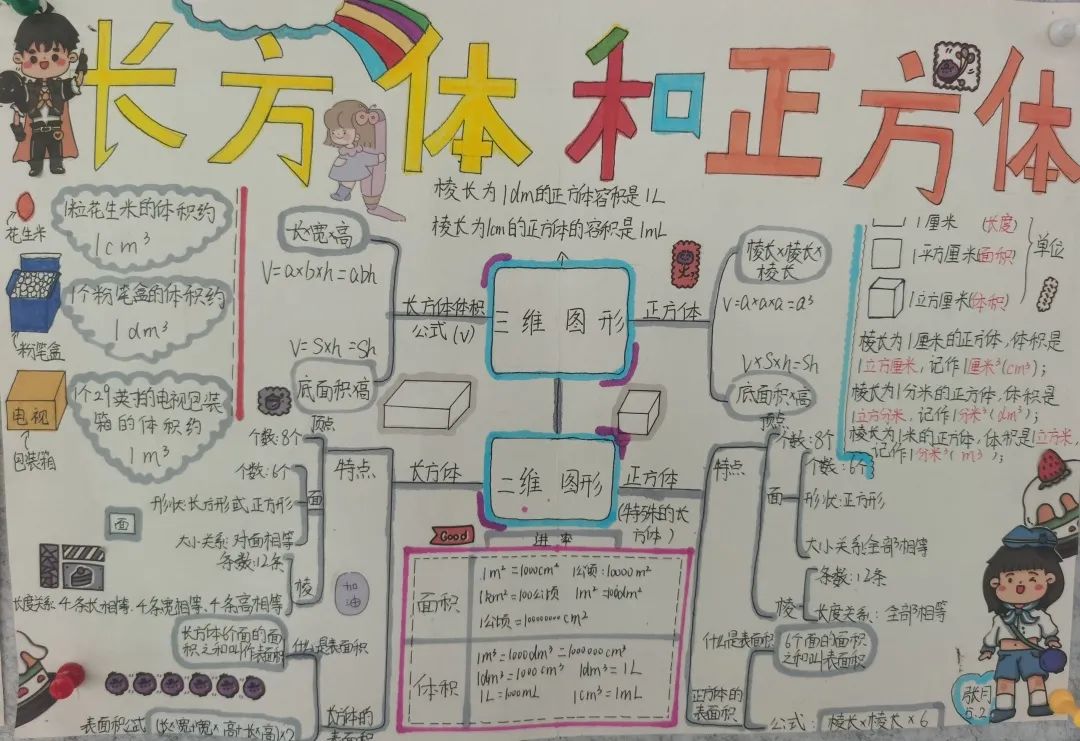 长方体和正方体
棱长为1dm的正方体容积是1L
棱长为1cm的正方体的容积是1mL
花生米
1粒花生米的体积约
1cm³
粉笔盒
1个粉笔盒的体积约
1dm³
电视
包装箱
1个29英寸的电视包装
箱的体积约
1m³
长×宽×高
V=a×b×h=abh
长方体体积
公式(V)
V=S×h=Sh
底面积×高
三维图形
正方体
棱长×棱长×
棱长
V=a×a×a=a³
V×S×h=Sh
底面积×高
1厘米 (长度)
1平方厘米面积
1立方厘米(体积)
单位
棱长为1厘米的正方体,体积是
1立方厘米,记作1厘米³(cm³);
棱长为1分米的正方体,体积是
1立方分米,记作1分米³(dm³);
棱长为1米的正方体,体积是1立方米,
记作1分米³(m³);
二维图形
长方体
特点
顶点
个数:8个
面
个数:6个
形状:长方形或正方形
大小关系:对面相等
面
棱
条数:12条
长度关系:4条长相等、4条宽相等、4条高相等
加油
什么是表面积
长方体6个面的面
积之和叫作表面积
长方体的
表面积
表面积公式 (长×宽+宽×高+长×高)×2
正方体
(特殊的长
方体)
特点
顶点
个数:8个
面
个数:6个
形状:正方形
大小关系:全部相等
棱
条数:12条
长度关系:全部相等
什么是表面积
6个面的面积
之和叫表面积
正方体的
表面积
公式:棱长×棱长×6
Good
进率
面积
1公顷=10000m²
1km²=100公顷
体积
1m³=1000dm³=1000000cm³
1dm³=1000cm³ 1dm³=1L
1L=1000mL 1cm³=1mL
5.2